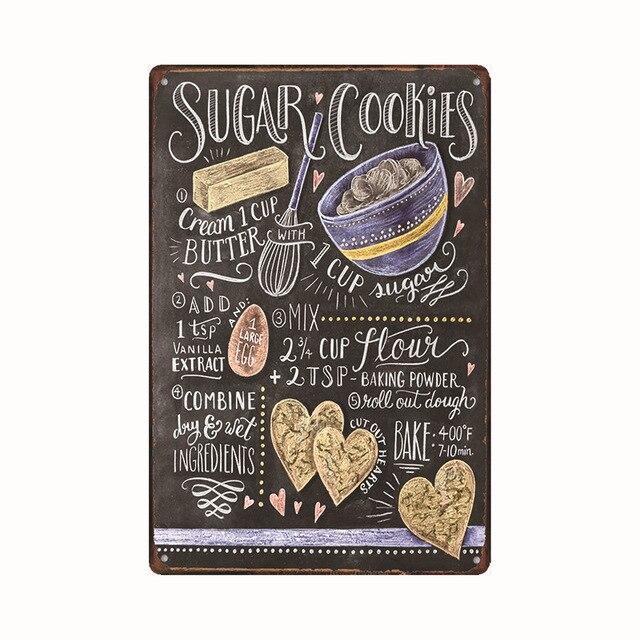 SUGAR COOKIES
① Cream 1 CUP
BUTTER WITH
1 CUP sugar
② ADD
1 tsp
VANILLA
EXTRACT
AND:
1
LARGE
EGG
③ MIX
2 3/4 CUP flour
+ 2 TSP - BAKING POWDER
④ COMBINE
dry & wet
INGREDIENTS
⑤ roll out dough
CUT OUT HEARTS
BAKE: 400°F
7-10 min.